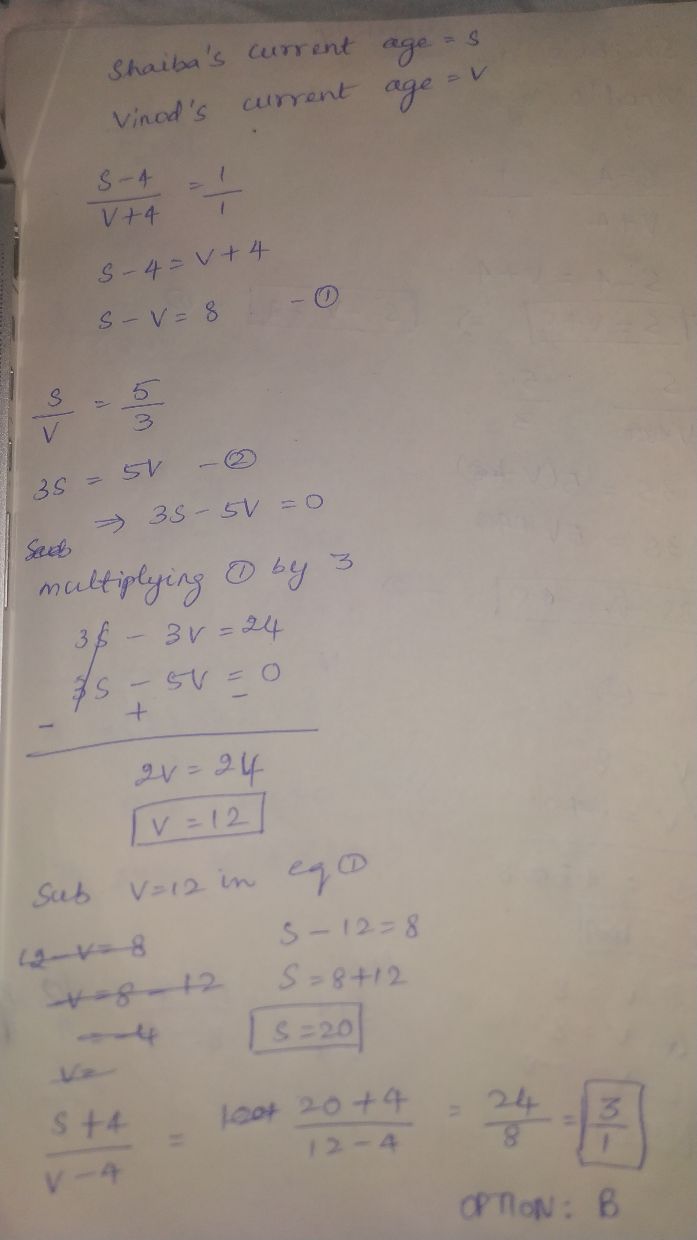 Shaiba's current age = S
Vinod's current age = V
S-4/V+4 = 1/1
S-4 = V+4
S-V = 8 -①
S/V = 5/3
3S = 5V -②
⇒ 3S-5V = 0
multiplying ① by 3
3S - 3V = 24
3S - 5V = 0
- + -
2V = 24
V = 12
Sub V=12 in eq ①
12-V=8
S-12=8
V=8-12
S=8+12
=-4
S=20
V=
S+4/V-4 = 20+4/12-4 = 24/8 = 3/1
OPTION: B